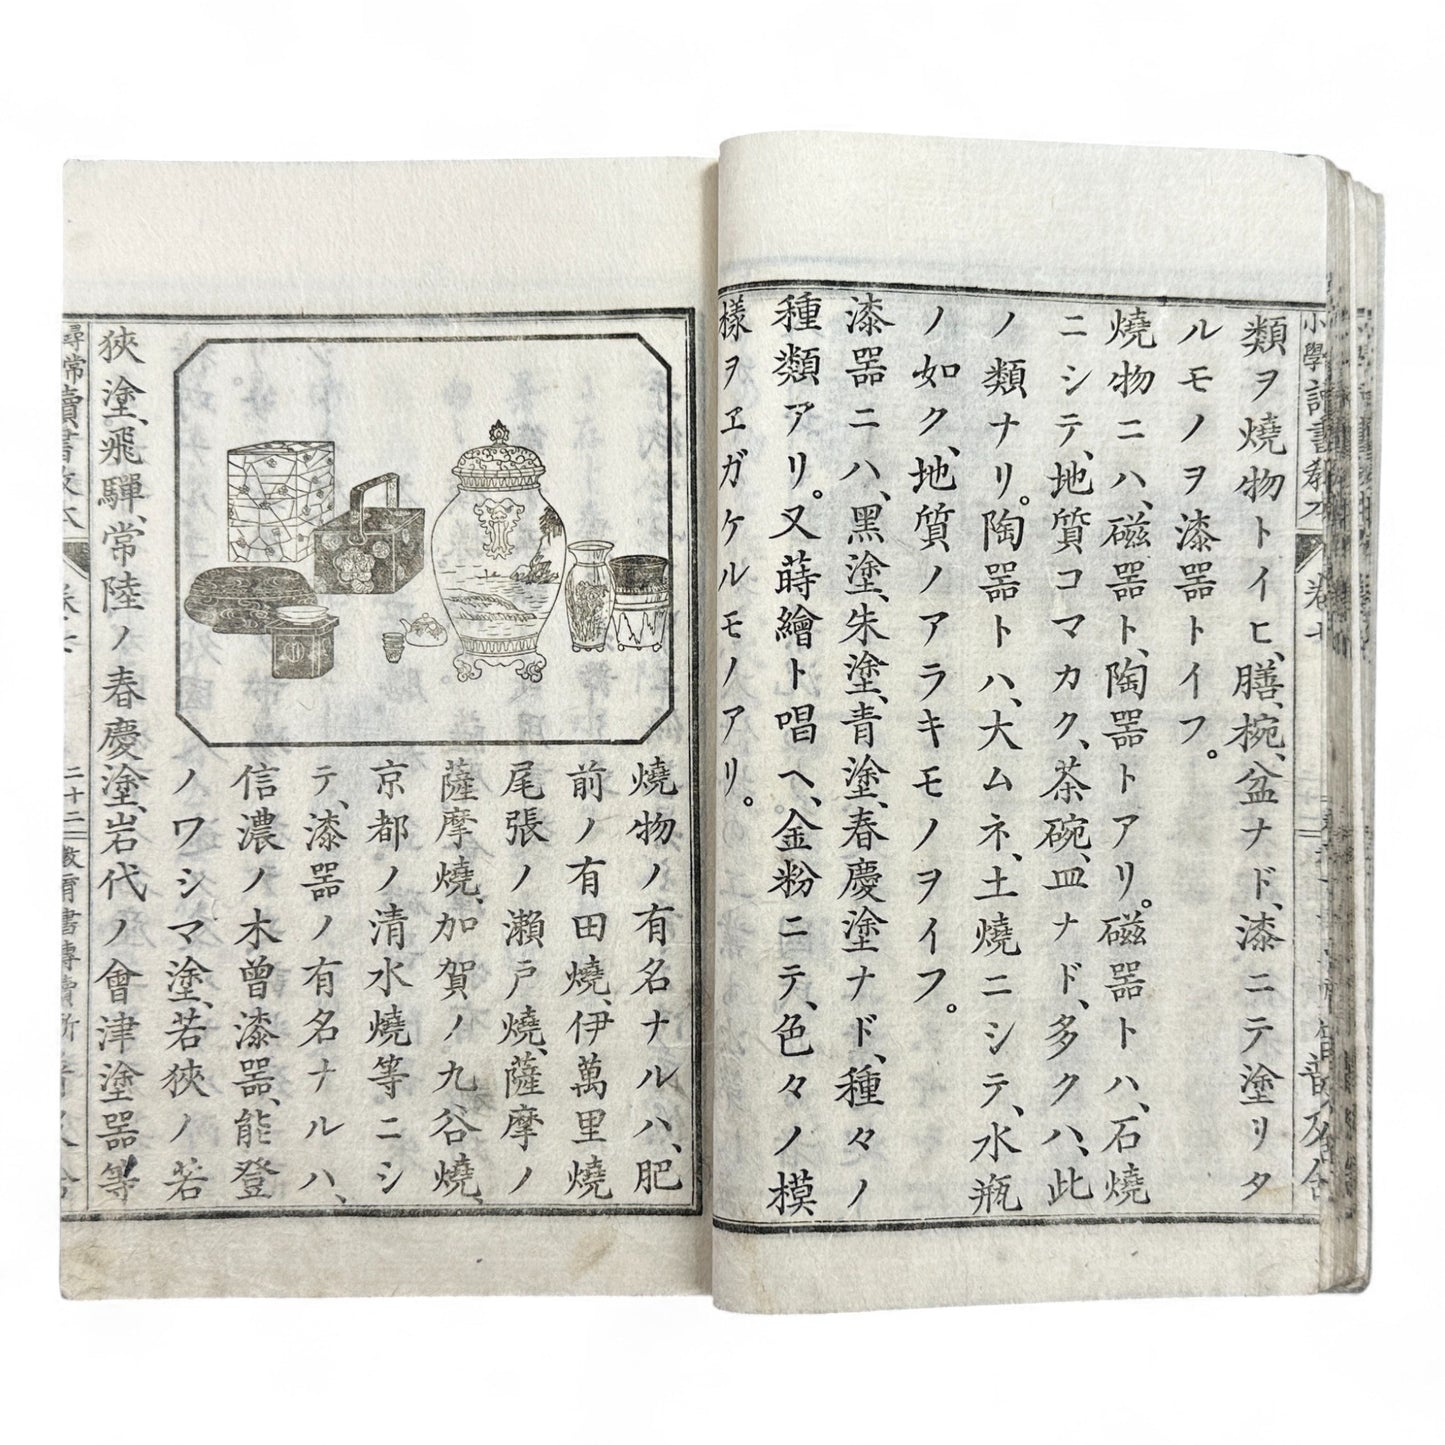 類ヲ燒物トイヒ、膳、椀、盆ナド、漆ニテ塗リタ
ルモノヲ漆器トイフ。
燒物ニハ、磁器ト、陶器トアリ。磁器トハ、石燒
ニシテ、地質コマカク、茶碗、皿ナド、多クハ、此
ノ類ナリ。陶器トハ、大ムネ、土燒ニシテ、水瓶
ノ如ク、地質ノアラキモノヲイフ。
漆器ニハ、黑塗、朱塗、青塗、春慶塗ナド、種々ノ
種類アリ。又蒔繪ト唱ヘ、金粉ニテ、色々ノ模
樣ヲヱガケルモノアリ。
燒物ノ有名ナルハ、肥
前ノ有田燒、伊萬里燒
尾張ノ瀨戸燒、薩摩ノ
薩摩燒、加賀ノ九谷燒、
京都ノ清水燒等ニシ
テ、漆器ノ有名ナルハ、
信濃ノ木曾漆器、能登
ノワシマ塗、若狹ノ若
狹塗、飛驒、常陸ノ春慶塗、岩代ノ會津塗器等
尋常讀書敎本
二十二